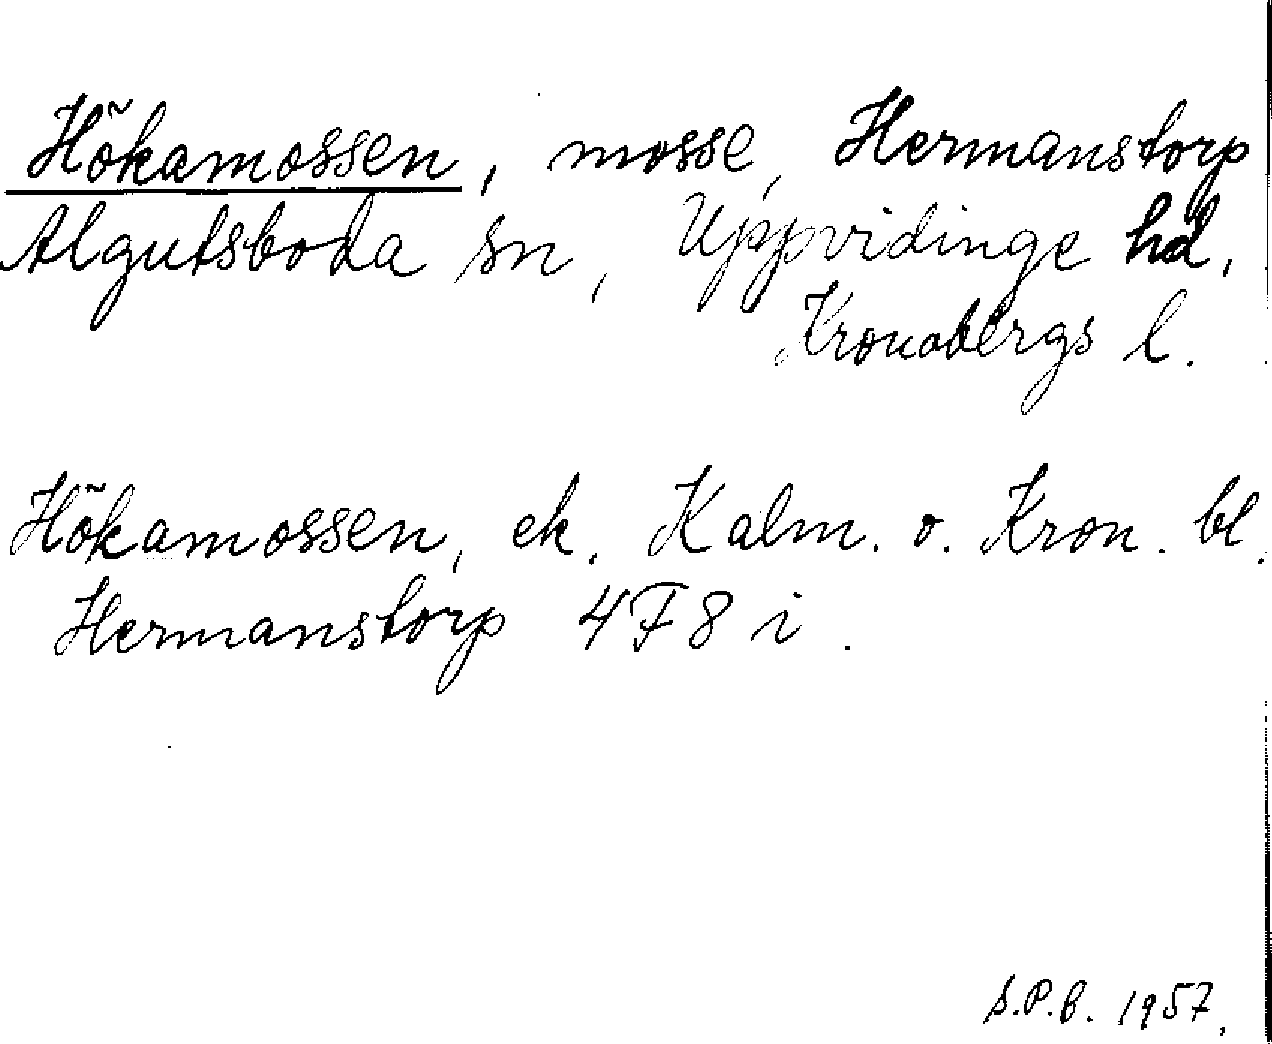 Hökamossen, mosse, Hermanstorp
Algutsboda sn, Uppvidinge hd,
Kronobergs l.
Hökamossen, ek. Kalm. o. Kron. bl.
Hermanstorp 4F8i.
S.P.B. 1957.